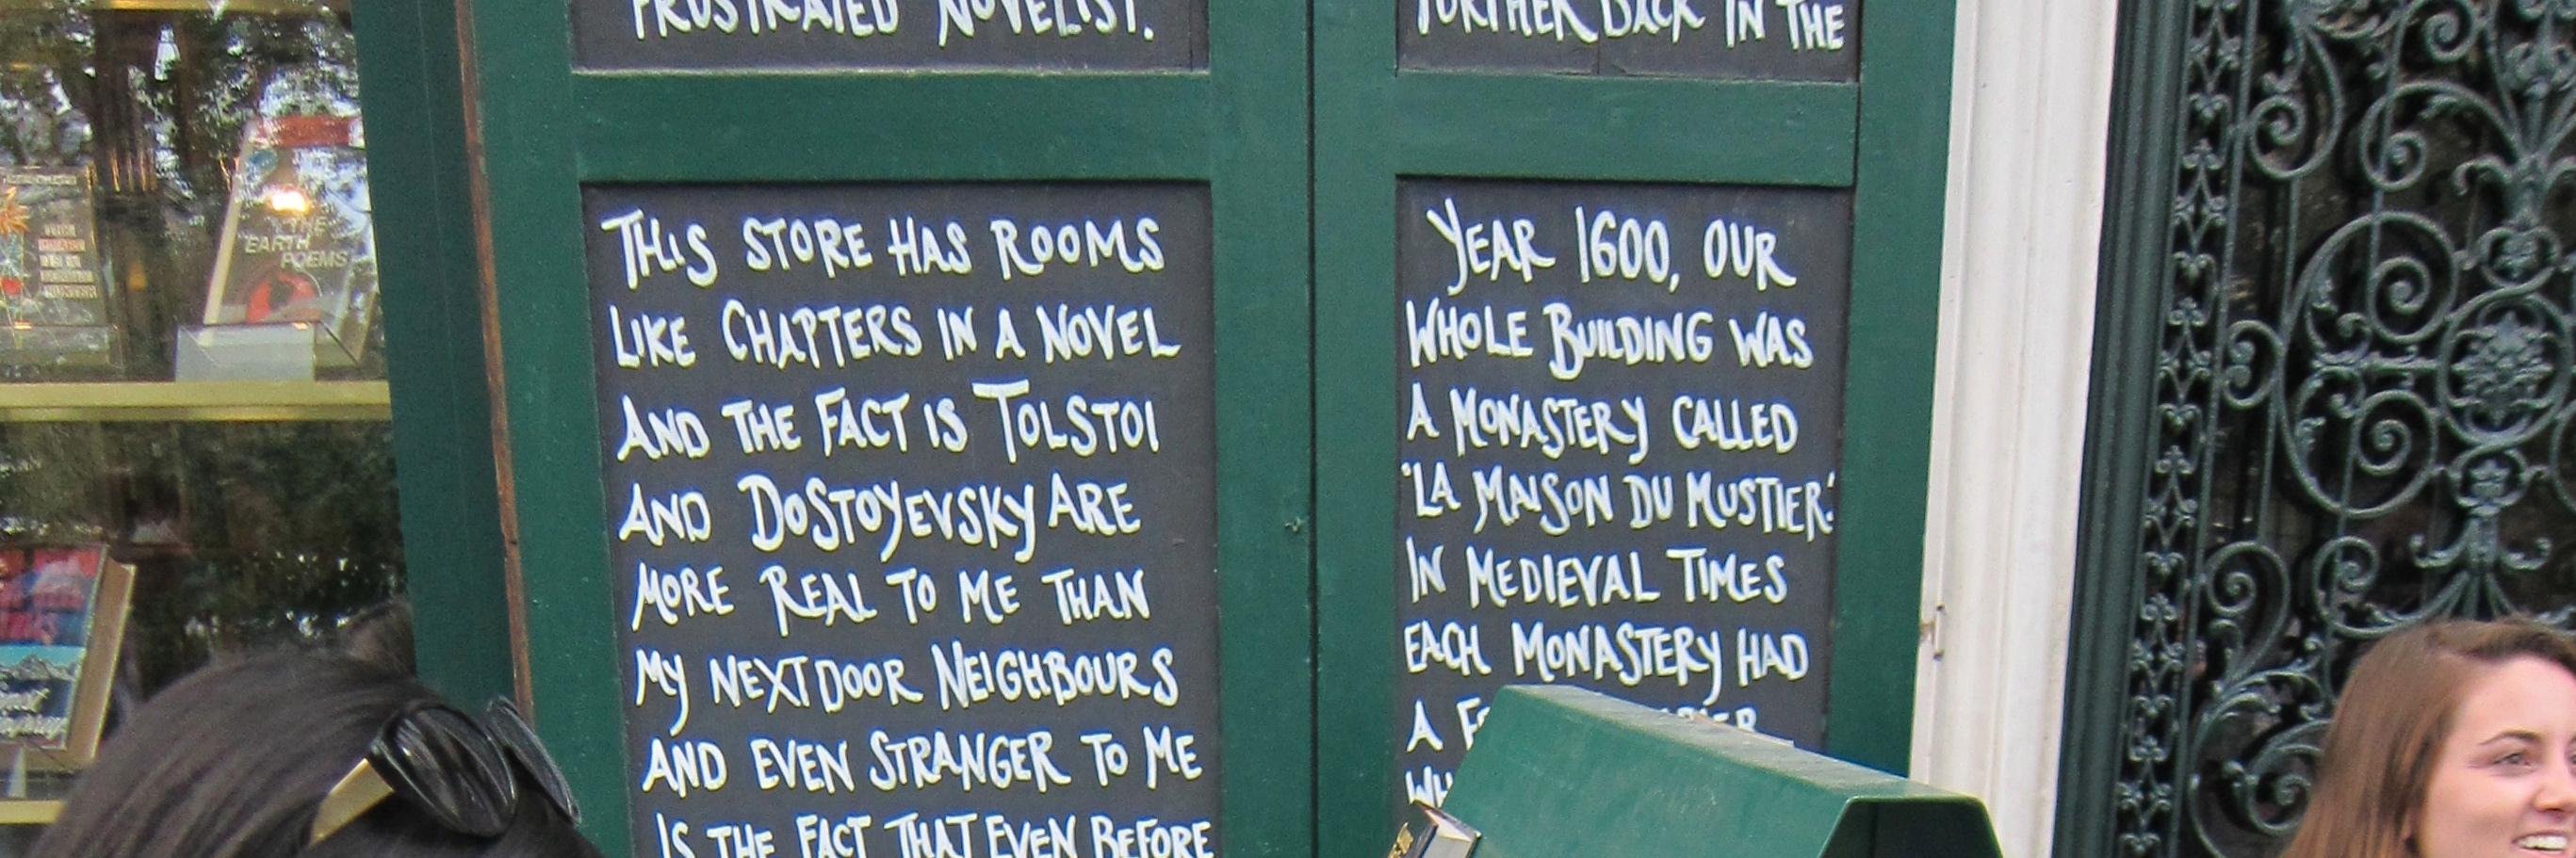 FRUSTRATED NOVELIST.
THIS STORE HAS ROOMS
LIKE CHAPTERS IN A NOVEL
AND THE FACT IS TOLSTOI
AND DOSTOYEVSKY ARE
MORE REAL TO ME THAN
MY NEXT DOOR NEIGHBOURS
AND EVEN STRANGER TO ME
IS THE FACT THAT EVEN BEFORE
FURTHER BACK IN THE
YEAR 1600, OUR
WHOLE BUILDING WAS
A MONASTERY CALLED
'LA MAISON DU MUSTIER.'
IN MEDIEVAL TIMES
EACH MONASTERY HAD
A
THE
EARTH
POEMS